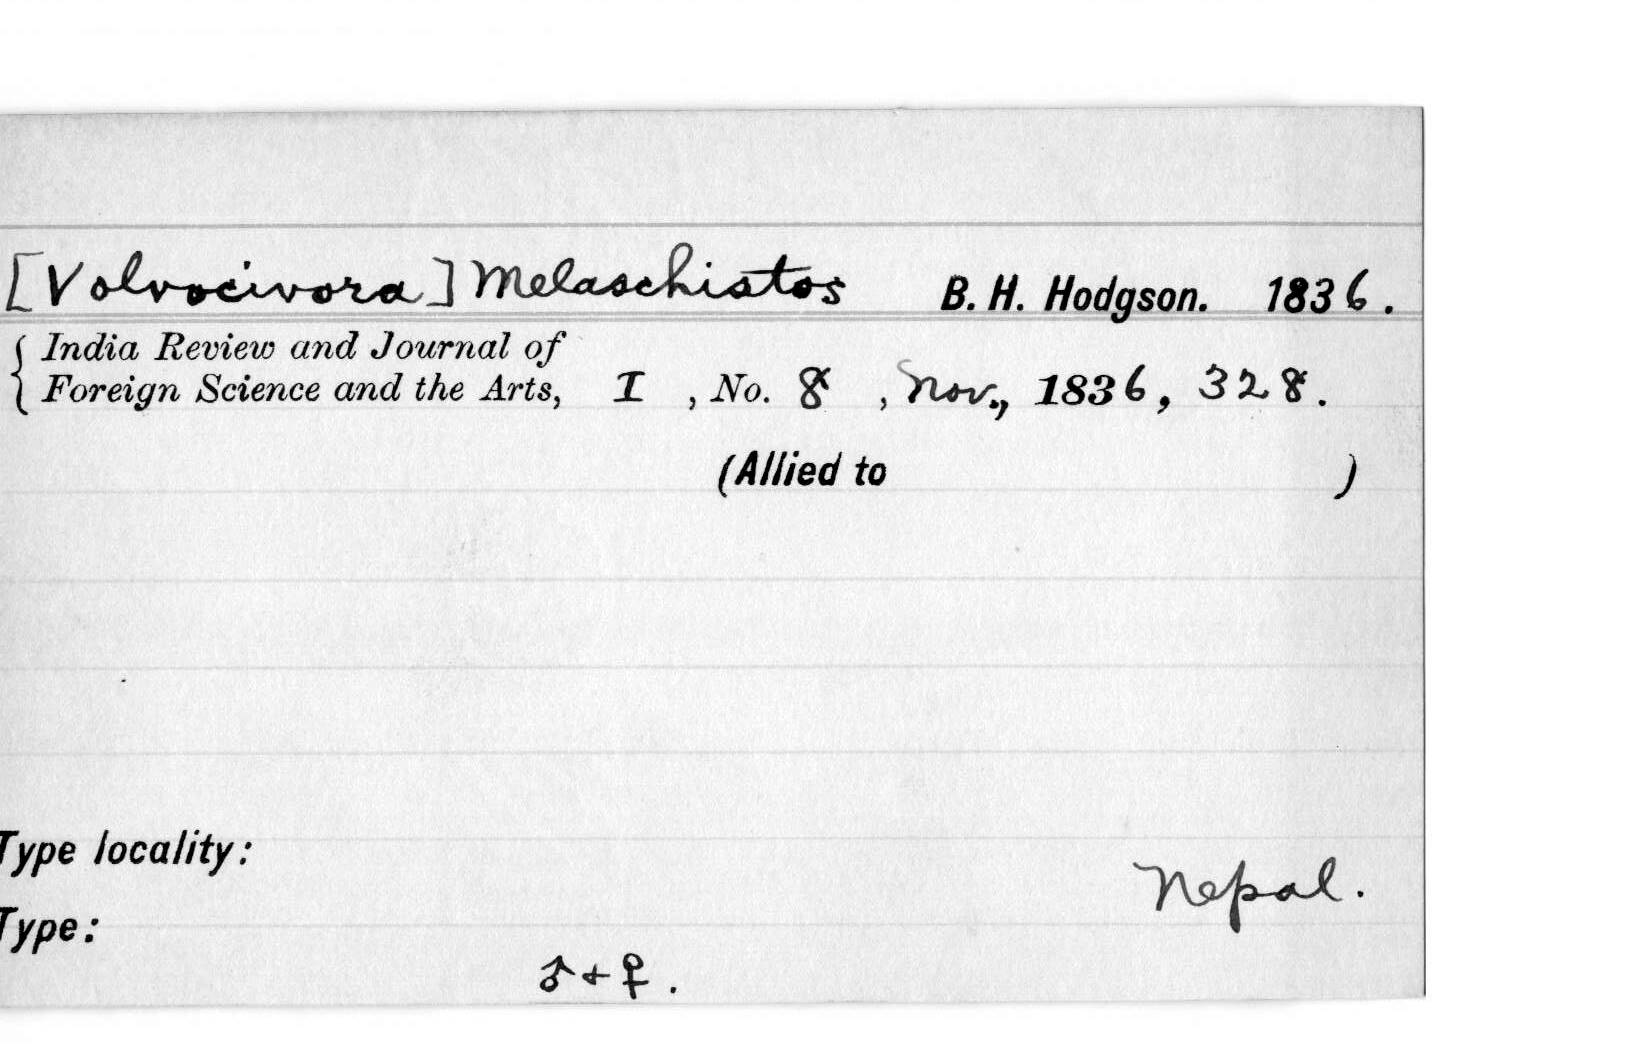 [Volvocivora] Melaschistos B. H. Hodgson. 1836.
{ India Review and Journal of
Foreign Science and the Arts, I , No. 8 , Nov., 1836, 328.
(Allied to )
Type locality:
Nepal.
Type:
♂ + ♀ .